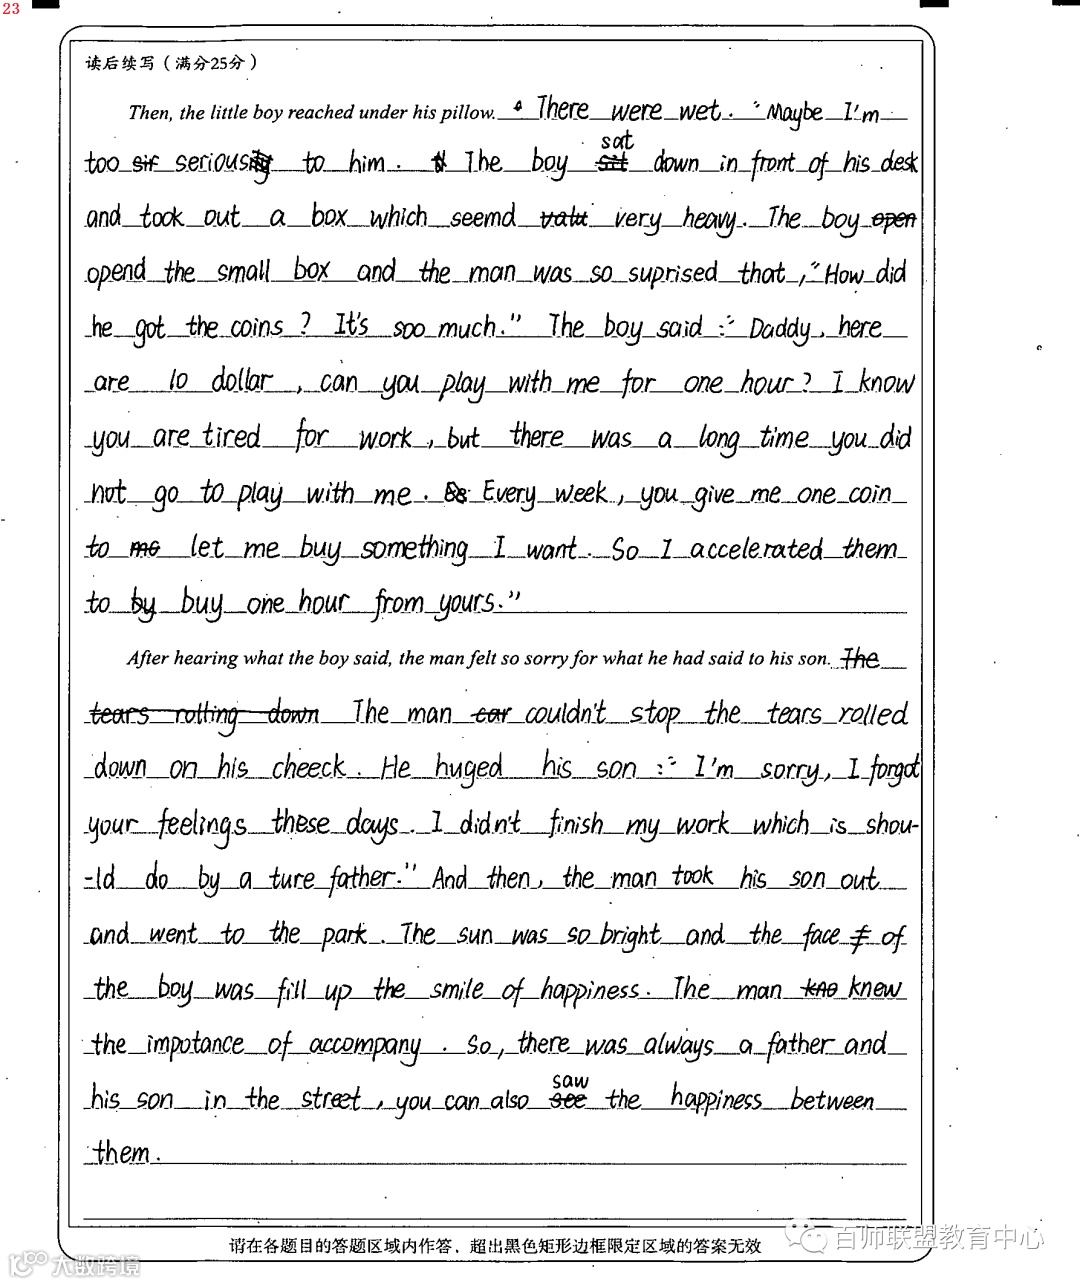 23
读后续写（满分25分）
Then, the little boy reached under his pillow. There were wet. "Maybe I'm
sat
too sir serious to him. The boy sit down in front of his desk
and took out a box which seemd very heavy. The boy open
opend the small box and the man was so suprised that, "How did
he got the coins? It's soo much." The boy said:" Daddy, here
are 10 dollar, can you play with me for one hour? I know
you are tired for work, but there was a long time you did
not go to play with me. Every week, you give me one coin
to me let me buy something I want. So I accelerated them
to by buy one hour from yours."
After hearing what the boy said, the man felt so sorry for what he had said to his son. The
tears rolling down The man car couldn't stop the tears rolled
down on his cheeck. He huged his son:" I'm sorry, I forgot
your feelings these days. I didn't finish my work which is shou-
-ld do by a ture father." And then, the man took his son out
and went to the park. The sun was so bright and the face of
the boy was fill up the smile of happiness. The man kno knew
the impotance of accompany. So, there was always a father and
saw
his son in the street, you can also see the happiness between
them.
请在各题目的答题区域内作答，超出黑色矩形边框限定区域的答案无效
百师联盟教育中心
大数跨境